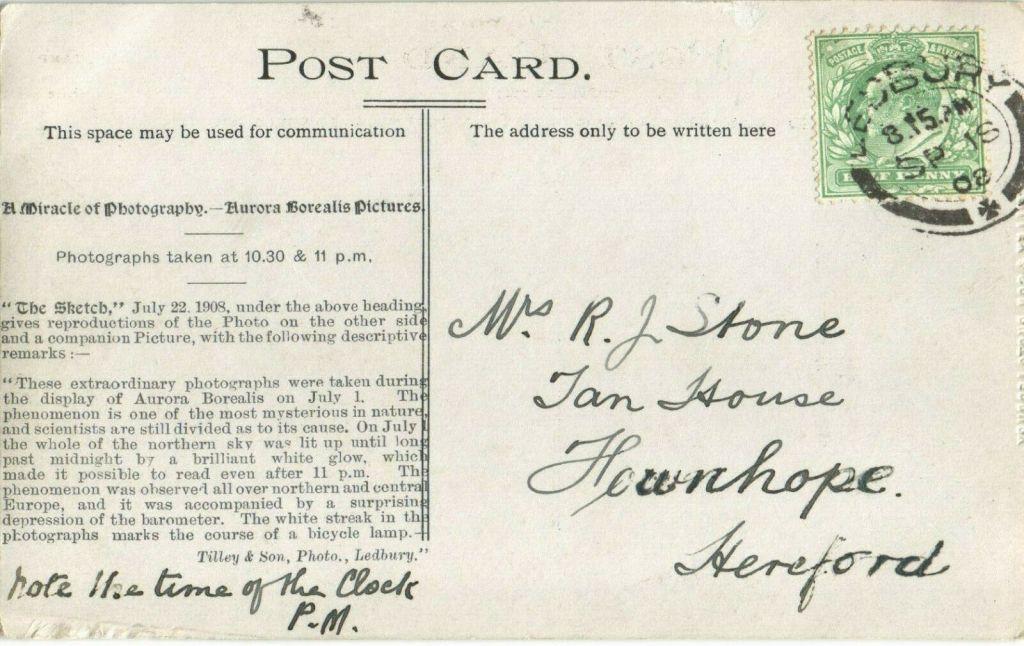 POST CARD.
This space may be used for communication
The address only to be written here
A Miracle of Photography.—Aurora Borealis Pictures.
Photographs taken at 10.30 & 11 p.m.
"The Sketch," July 22. 1908, under the above heading,
gives reproductions of the Photo on the other side
and a companion Picture, with the following descriptive
remarks :—
"These extraordinary photographs were taken during
the display of Aurora Borealis on July 1. The
phenomenon is one of the most mysterious in nature,
and scientists are still divided as to its cause. On July 1
the whole of the northern sky was lit up until long
past midnight by a brilliant white glow, which
made it possible to read even after 11 p.m. The
phenomenon was observed all over northern and central
Europe, and it was accompanied by a surprising
depression of the barometer. The white streak in the
photographs marks the course of a bicycle lamp.—
Tilley & Son, Photo., Ledbury."
Note the time of the Clock
P.M.
POSTAGE & REVENUE
HALF PENNY
LEDBURY
8.15 PM
SP 16
08
Mrs. R. J. Stone
Tan House
Fownhope.
Hereford